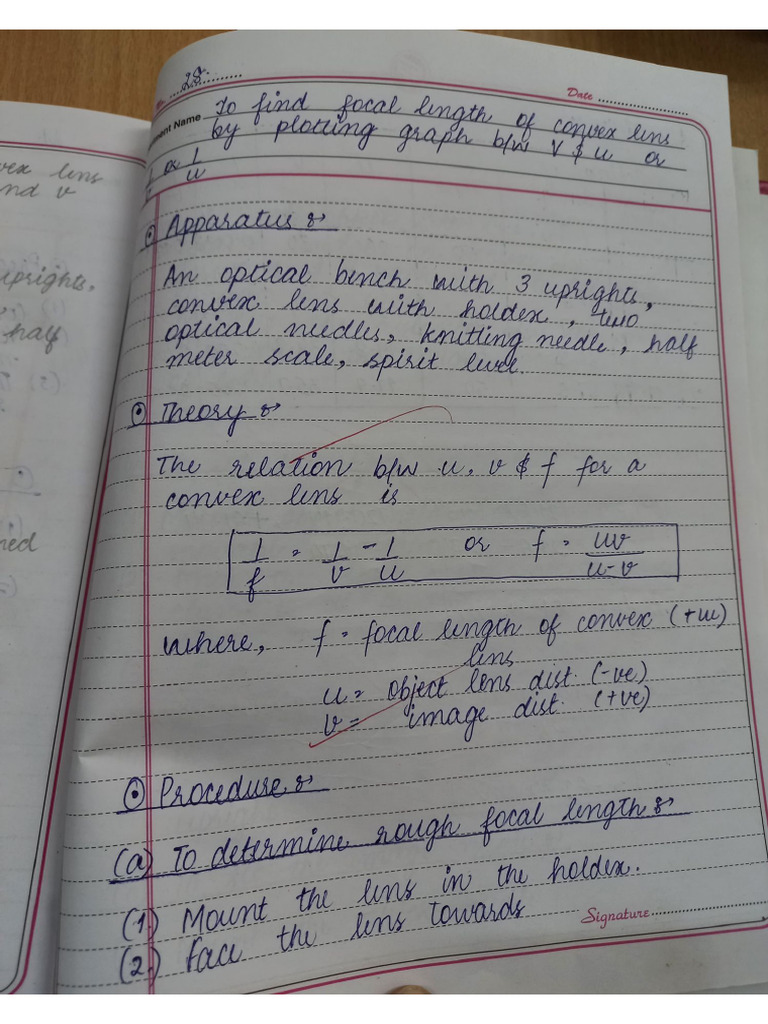 28.
Date
ment Name To find focal length of convex lens
by plotting graph b/w v & u or
or 1/u
Apparatus :-
An optical bench with 3 uprights,
convex lens with holder, two
optical needles, knitting needle, half
meter scale, spirit level.
Theory :-
The relation b/w u, v & f for a
convex lens is
1/f = 1/v - 1/u or f = uv/u-v
where, f = focal length of convex (+ve)
lens
u = object lens dist. (-ve)
v = image dist. (+ve)
Procedure :-
(a) To determine rough focal length :-
(1) Mount the lens in the holder.
(2.) Face the lens towards
Signature
vex lens
nd v
uprights,
half
ned